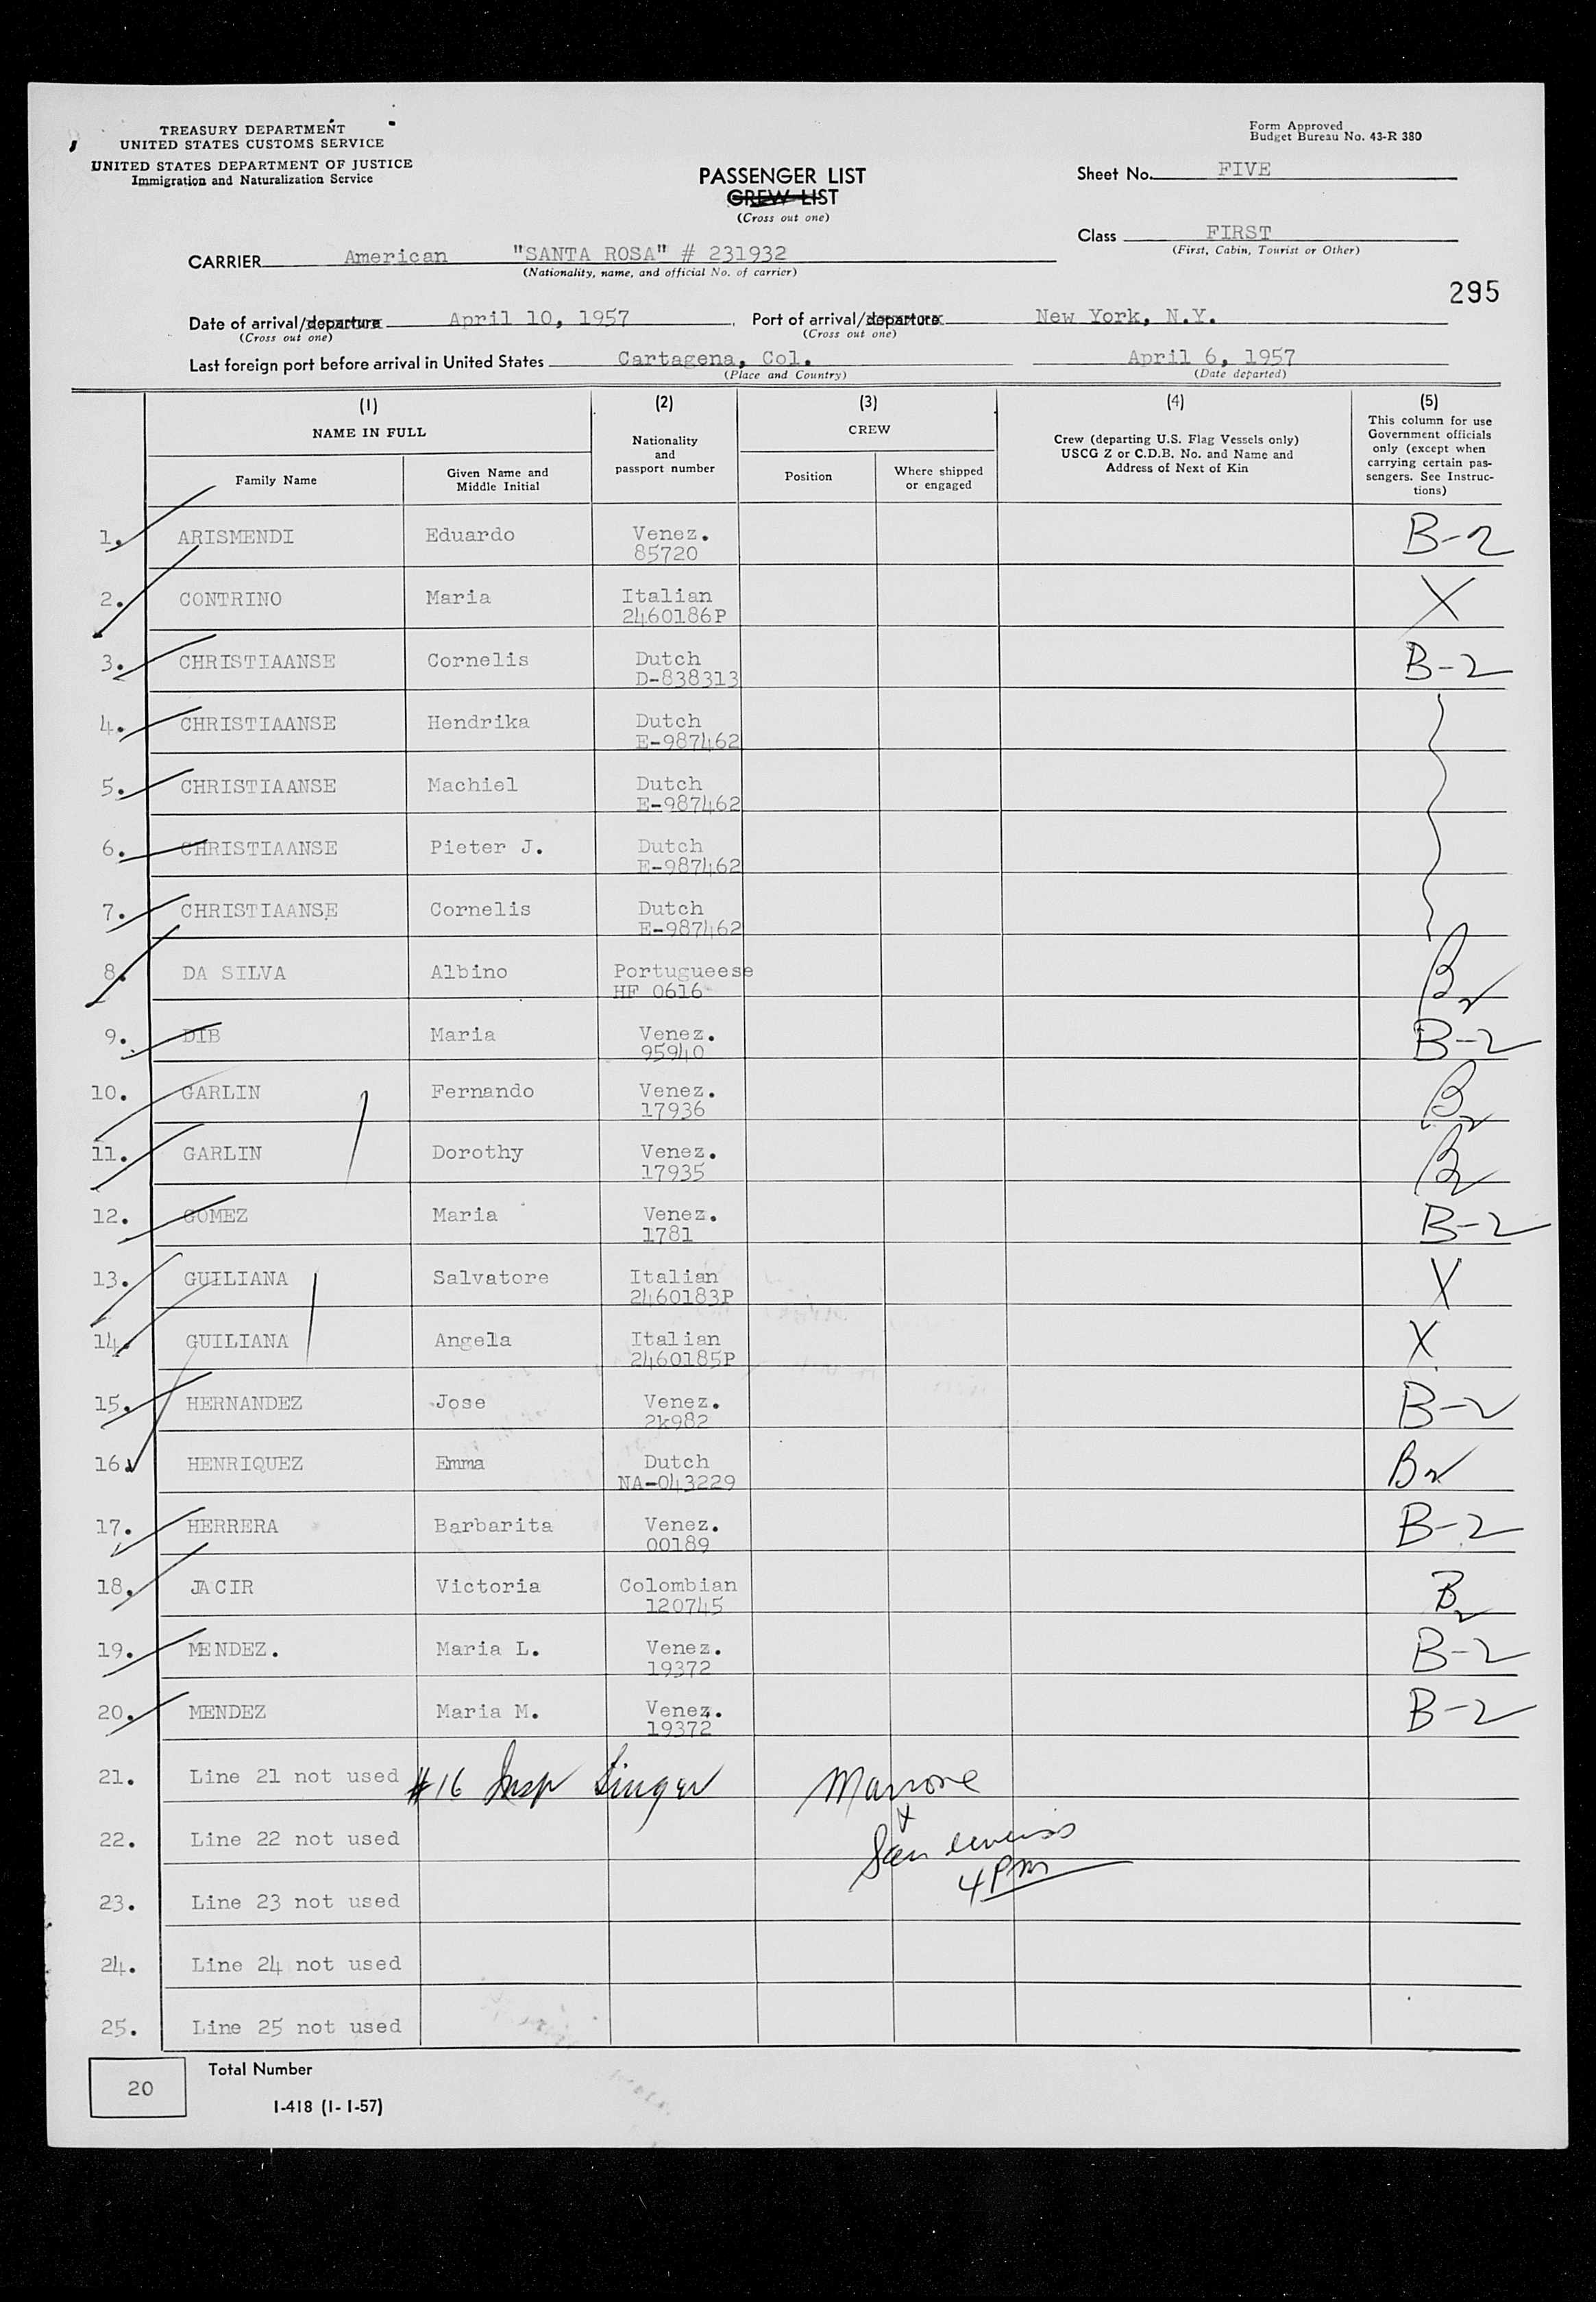 TREASURY DEPARTMENT
UNITED STATES CUSTOMS SERVICE
UNITED STATES DEPARTMENT OF JUSTICE
Immigration and Naturalization Service
Form Approved
Budget Bureau No. 43-R 380
PASSENGER LIST
CREW LIST
(Cross out one)
Sheet No. FIVE
Class FIRST
(First, Cabin, Tourist or Other)
CARRIER American "SANTA ROSA" # 231932
(Nationality, name, and official No. of carrier)
295
Date of arrival/departure April 10, 1957. Port of arrival/departure New York, N.Y.
(Cross out one) (Cross out one)
Last foreign port before arrival in United States Cartagena, Col. April 6, 1957
(Place and Country) (Date departed)
(1) (2) (3) (4) (5)
NAME IN FULL
Family Name
Given Name and Middle Initial
Nationality and passport number
CREW
Position
Where shipped or engaged
Crew (departing U.S. Flag Vessels only)
USCG Z or C.D.B. No. and Name and
Address of Next of Kin
This column for use
Government officials
only (except when
carrying certain pas-
sengers. See Instruc-
tions)
1. ARISMENDI Eduardo Venez. B-2
85720
2. CONTRINO Maria Italian X
2460186P
3. CHRISTIAANSE Cornelis Dutch B-2
D-838313
4. CHRISTIAANSE Hendrika Dutch
E-987462
5. CHRISTIAANSE Machiel Dutch
E-987462
6. CHRISTIAANSE Pieter J. Dutch
E-987462
7. CHRISTIAANSE Cornelis Dutch
E-987462
8. DA SILVA Albino Portugueese B2
HF 0616
9. DIB Maria Venez. B-2
95940
10. GARLIN Fernando Venez. B2
17936
11. GARLIN Dorothy Venez. B2
17935
12. GOMEZ Maria Venez. B-2
1781
13. GUILIANA Salvatore Italian X
2460183P
14. GUILIANA Angela Italian X
2460185P
15. HERNANDEZ Jose Venez. B-2
2k982
16. HENRIQUEZ Emma Dutch B2
NA-043229
17. HERRERA Barbarita Venez. B-2
00189
18. JACIR Victoria Colombian B2
120745
19. MENDEZ. Maria L. Venez. B-2
19372
20. MENDEZ Maria M. Venez. B-2
19372
21. Line 21 not used #16 Insp Singer Marrone
22. Line 22 not used San
4PM
23. Line 23 not used
24. Line 24 not used
25. Line 25 not used
20 Total Number
I-418 (1-1-57)